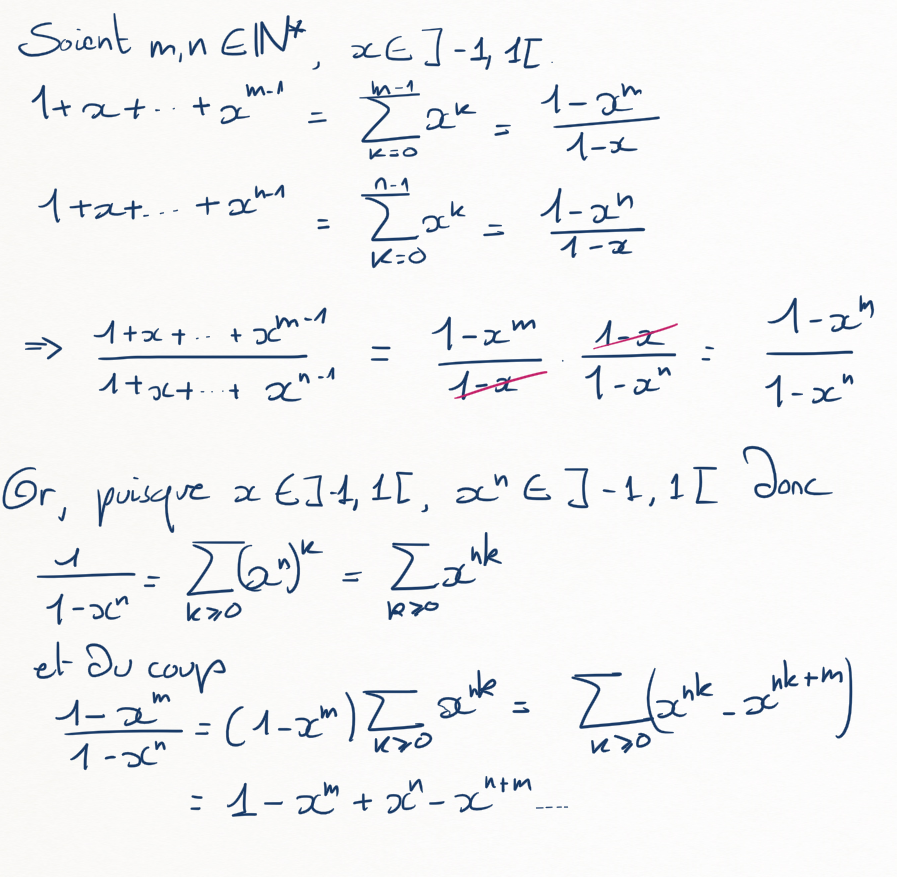 Soient m,n ∈ ℕ*, x ∈ ]-1,1[.
1+x+...+x^{m-1} = \sum_{k=0}^{m-1} x^k = \frac{1-x^m}{1-x}
1+x+...+x^{n-1} = \sum_{k=0}^{n-1} x^k = \frac{1-x^n}{1-x}
⇒ \frac{1+x+...+x^{m-1}}{1+x+...+x^{n-1}} = \frac{1-x^m}{1-x} . \frac{1-x}{1-x^n} = \frac{1-x^m}{1-x^n}
Or, puisque x ∈ ]-1,1[, x^n ∈ ]-1,1[ donc
\frac{1}{1-x^n} = \sum_{k≥0} (x^n)^k = \sum_{k≥0} x^{nk}
et du coup
\frac{1-x^m}{1-x^n} = (1-x^m) \sum_{k≥0} x^{nk} = \sum_{k≥0} (x^{nk} - x^{nk+m})
= 1 - x^m + x^n - x^{n+m} ....